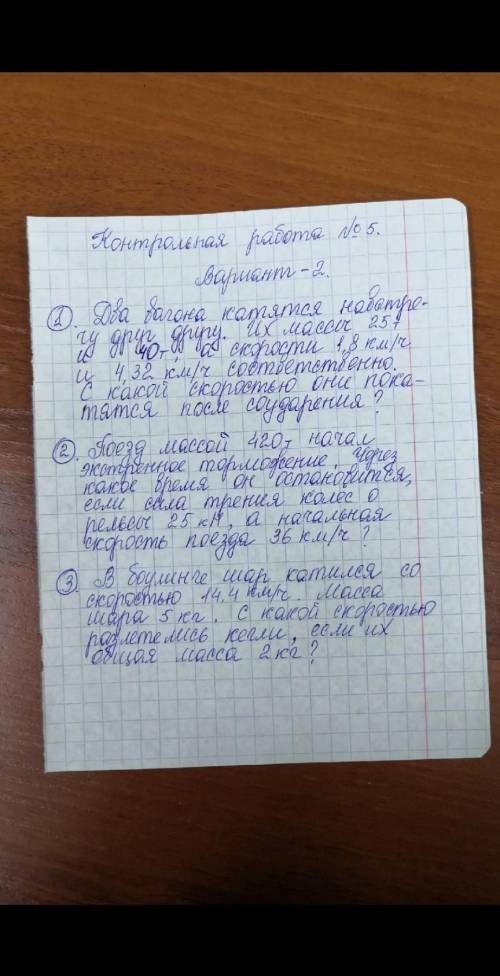 Контрольная работа № 5.
Вариант-2.
① Два вагона катятся навстре-
чу друг другу. Их массы 25т
и 40т, а скорости 1,8 км/ч
и 4,32 км/ч соответвенно.
С какой скоростью они пока-
тятся после соударения?
② Поезд массой 420т начал
экстренное торможение. Через
какое время он остановится,
если сила трения колес о
рельсы 25 кН, а начальная
скорость поезда 36 км/ч?
③ В боулинге шар катился со
скоростью 14,4 км/ч. Масса
шара 5 кг. С какой скоростью
разлетелись кегли, если их
общая масса 2 кг?